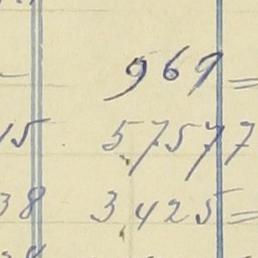 969 =
15 57577
38 3425 =